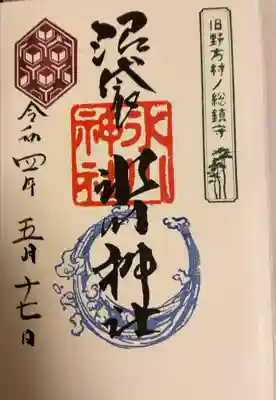 旧野方村ノ総鎮守
沼袋氷川神社
氷川
神社
令和四年五月十七日